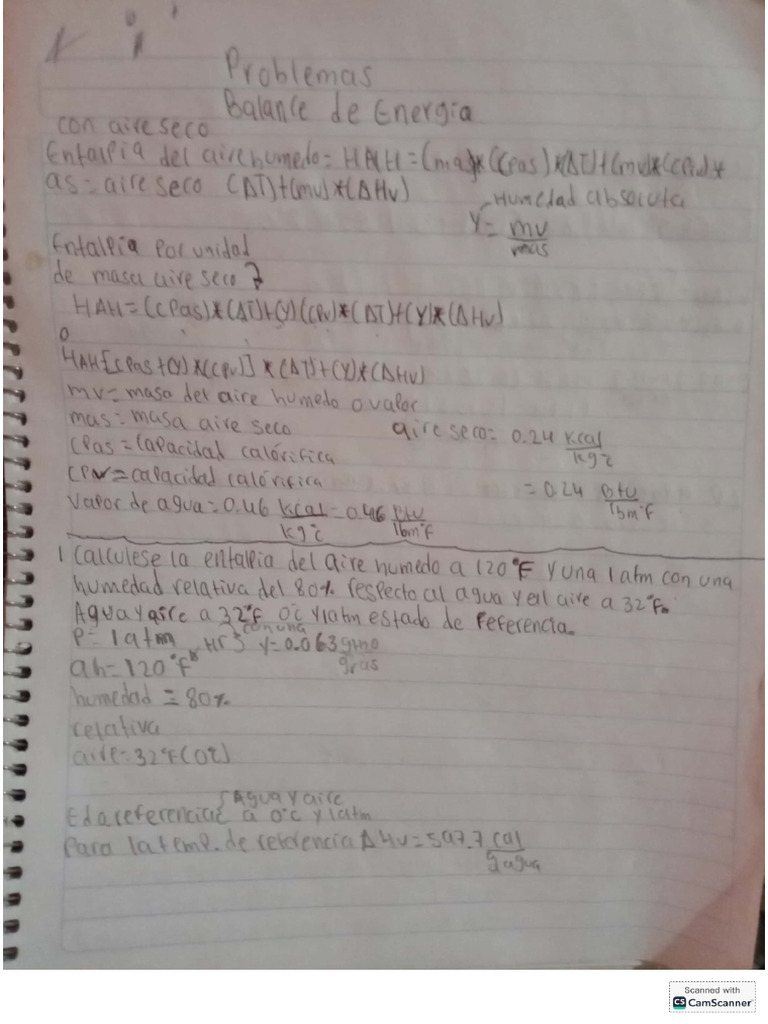 Problemas
Balance de Energia
con aire seco
Entalpia del aire humedo = HAH = (mas)*(CPas)*(ΔT)+(mv)*(CPv)*
as = aire seco (ΔT)+(mv)*(ΔHv)
Humedad absoluta
Y = mv
mas
Entalpia Por unidad
de masa aire seco }
HAH = (CPas)*(ΔT)+(Y)(CPv)*(ΔT)+(Y)*(ΔHv)
o
HAH[CPas+(Y)*(CPv)]*(ΔT)+(Y)*(ΔHv)
mv = masa del aire humedo o vapor
mas = masa aire seco
aire seco = 0.24 Kcal
Kg°c
CPas = Capacidad calórifica
CPv = capacidad calórifica
= 0.24 Btu
lbm°F
Vapor de agua = 0.46 Kcal = 0.46 Btu
Kg°c lbm°F
1 Calculese la entalpia del aire humedo a 120°F y una 1 atm con una
humedad relativa del 80% respecto al agua y el aire a 32°F.
Agua y aire a 32°F 0°c y 1atm estado de referencia.
P = 1 atm
con una
HR } Y = 0.063
gras
ah = 120°F
humedad = 80%
relativa
aire = 32°F (0°c)
{Agua y aire
a 0°c y 1atm
Para la temp. de referencia ΔHv = 597.7 cal
g agua
Scanned with
CS CamScanner